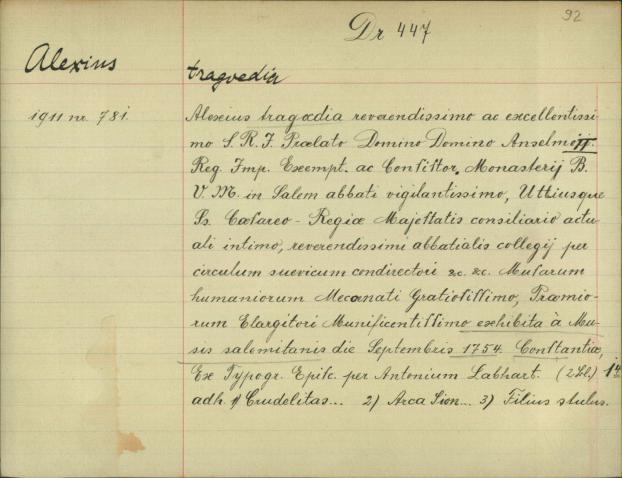 92
Dr 447
Alexius
tragoedia
1911 nr. 781.
Alexius tragœdia reverendissimo ac excellentissi
mo S. R. I. Prælato Domino Domino Anselmo II.
Reg. Imp. Exempt. ac Consistor. Monasterij B.
V. M. in Salem abbati vigilantissimo, Utriusque
Ss. Cæsareo - Regiæ Majestatis consiliario actu-
ali intimo, reverendissimi abbatialis collegij per
circulum suevicum condirectori &c. &c. Musarum
humaniorum Mecænati Gratiosissimo, Præmio-
rum Elargitori Munificentissimo exhibita à Mu-
sis salemitanis die Septembris 1754. Constantiæ,
Ex Typogr. Episc. per Antonium Labhart. (2 Ll.)
adh. 1) Crudelitas... 2) Arca Sion... 3) Filius stulus.